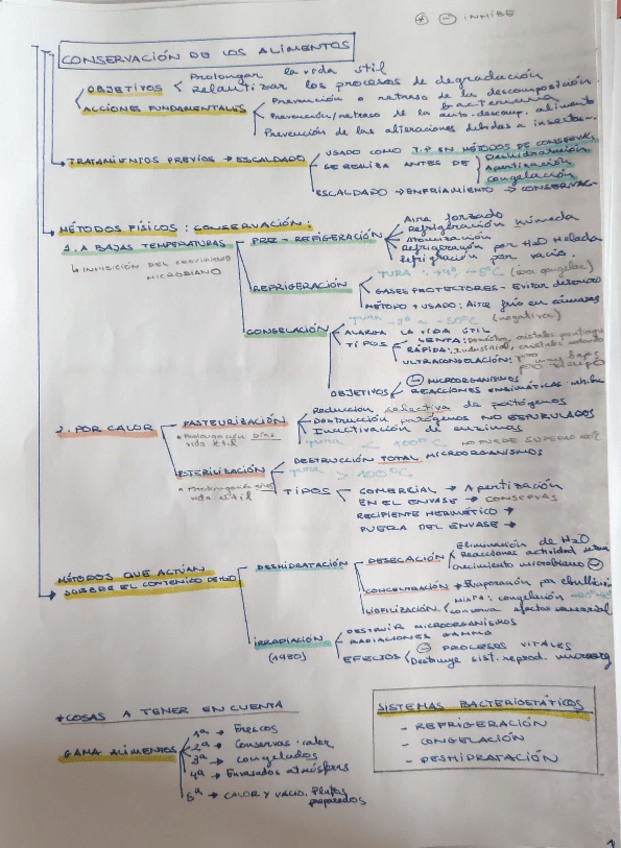 ⊕ ⊖ INHIBE
CONSERVACIÓN DE LOS ALIMENTOS
OBJETIVOS Prolongar la vida útil
Relantizar los procesos de degradación
ACCIONES FUNDAMENTALES Prevención o retraso de la descomposición
bacteriana
Prevención/retraso de la auto-descomp. alimento
Prevención de las alteraciones debidas a insectos
TRATAMIENTOS PREVIOS → ESCALDADO USADO COMO T.P EN MÉTODOS DE CONSERV.
SE REALIZA ANTES DE Deshidratación
Apertización
congelación
ESCALDADO → ENFRIAMIENTO → CONSERVAC-
MÉTODOS FÍSICOS: CONSERVACIÓN:
1. A BAJAS TEMPERATURAS PRE-REFRIGERACIÓN Aire forzado
Refrigeración húmeda
Atomización
Refrigeración por H2O Helada
refrigeración por vacío.
↳ INHIBICIÓN DEL CRECIMIENTO
MICROBIANO
REFRIGERACIÓN TURA:
GASES PROTECTORES - Evitar
MÉTODO + USADO: Aire frío en cámaras
CONGELACIÓN (negativa)
ALARGA LA VIDA ÚTIL
TIPOS LENTA: Doméstica, cristales
RÁPIDA: Industrial, cristales
ULTRACONGELACIÓN: muy bajas
poco tiempo
OBJETIVOS ⊖ MICROORGANISMOS
REACCIONES ENZIMÁTICAS
2. POR CALOR PASTEURIZACIÓN Reducción selectiva de patógenos
Destrucción patógenos NO ESPORULADOS
Inactivación de enzimas
* Prolongación días
vida útil
TURA < 100°C NO PUEDE SUPERAR 100°C
ESTERILIZACIÓN DESTRUCCIÓN TOTAL MICROORGANISMOS
TURA > 100°C
vida útil
TIPOS COMERCIAL → Apertización
EN EL ENVASE → CONSERVAS
RECIPIENTE HERMÉTICO →
FUERA DEL ENVASE →
MÉTODOS QUE ACTÚAN
SOBRE EL CONTENIDO DE H2O
DESHIDRATACIÓN DESECACIÓN Eliminación de H2O
Reacciones actividad
crecimiento microbiano ⊖
CONCENTRACIÓN → Evaporación por ebullición
LIOFILIZACIÓN MIXTA: congelación
conserva efectos
IRRADIACIÓN
(1980)
DESTRUIR MICROORGANISMOS
RADIACIONES GAMMA
EFECTOS ⊖ PROCESOS VITALES
Destruye sist. reprod. microorg
* COSAS A TENER EN CUENTA
GAMA ALIMENTOS 1ª → Frescos
2ª → Conservas · calor
3ª → congelados
4ª → Envasados atmósfera
5ª → CALOR Y VACÍO. Platos
preparados
SISTEMAS BACTERIOSTÁTICOS
- REFRIGERACIÓN
- CONGELACIÓN
- DESHIDRATACIÓN